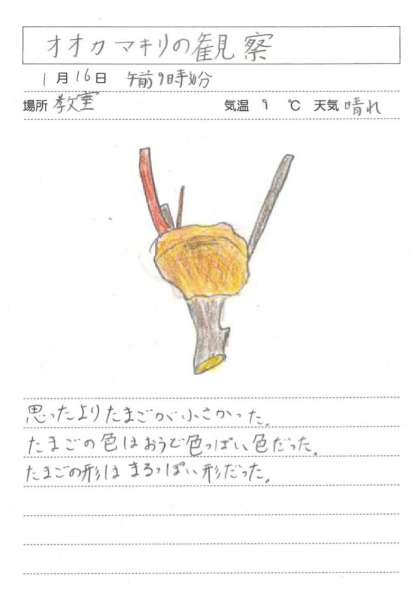 オオカマキリの観察
1月16日 午前9時30分
場所 教室 気温 9 ℃ 天気 晴れ
思ったよりたまごが小さかった。
たまごの色はおうど色っぽい色だった。
たまごの形はまるっぽい形だった。